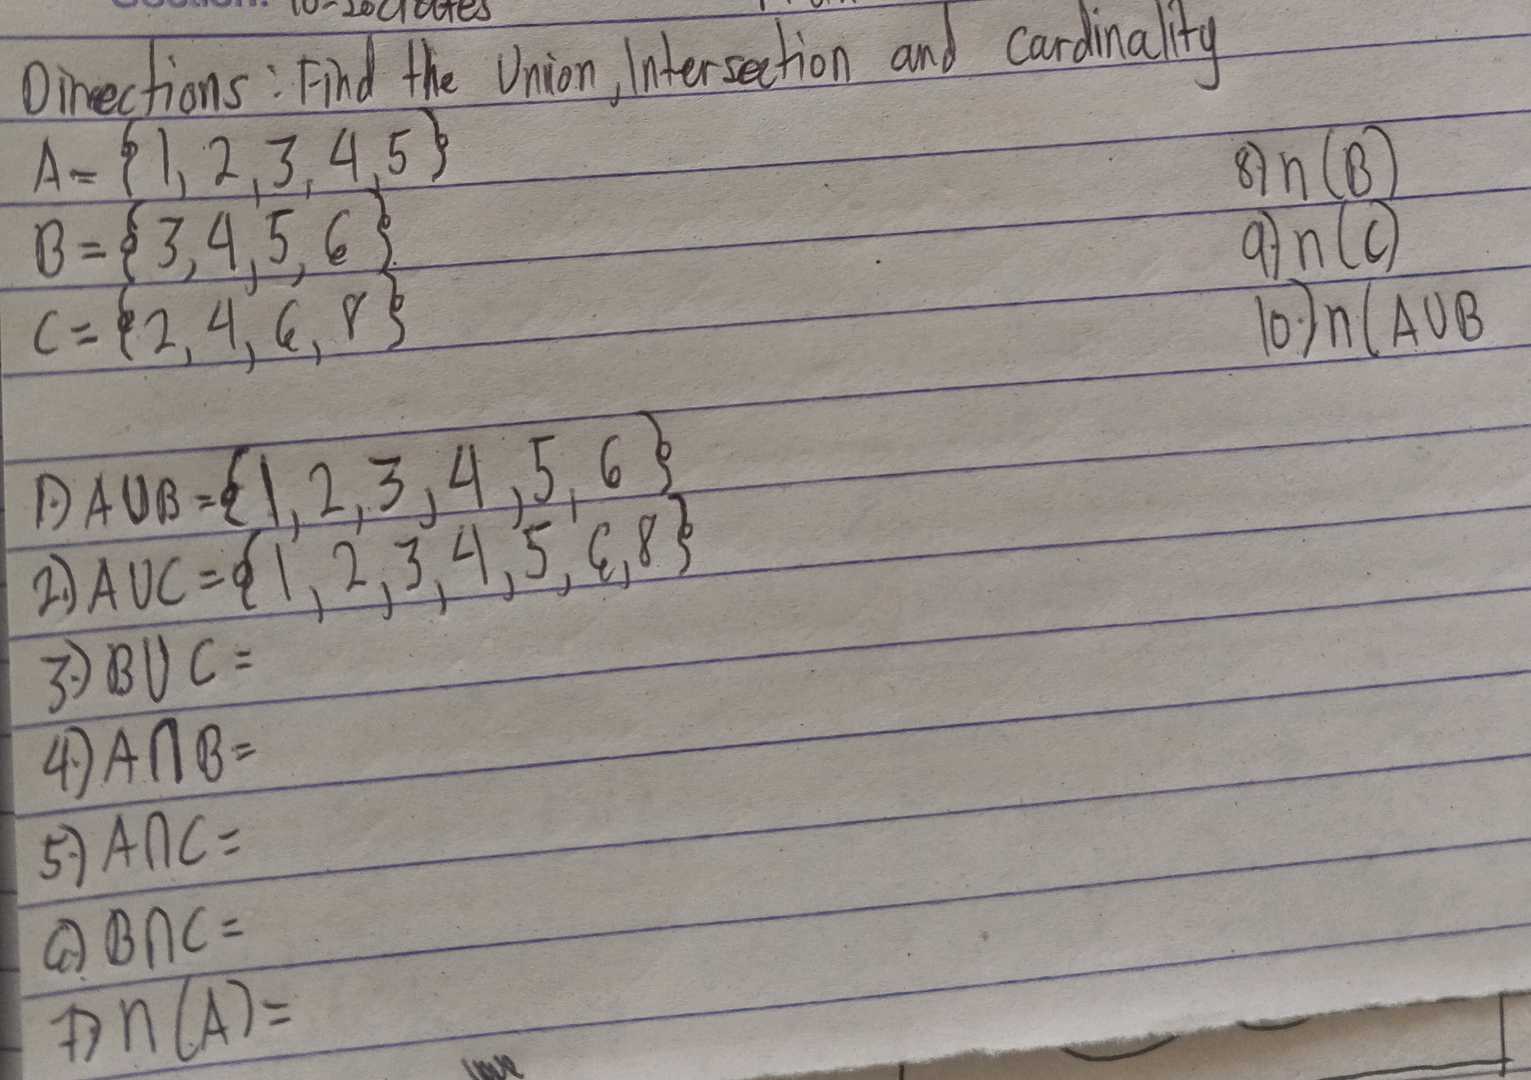 10-Socrates
Directions: Find the Union, Intersection and Cardinality
A= {1, 2, 3, 4, 5}
B = {3, 4, 5, 6}
C = {2, 4, 6, 8}
1.) A∪B = {1, 2, 3, 4, 5, 6}
2.) A∪C = {1, 2, 3, 4, 5, 6, 8}
3.) B∪C =
4.) A∩B =
5.) A∩C =
6.) B∩C =
7.) n(A) =
8.) n(B)
9.) n(C)
10.) n(A∪B
love